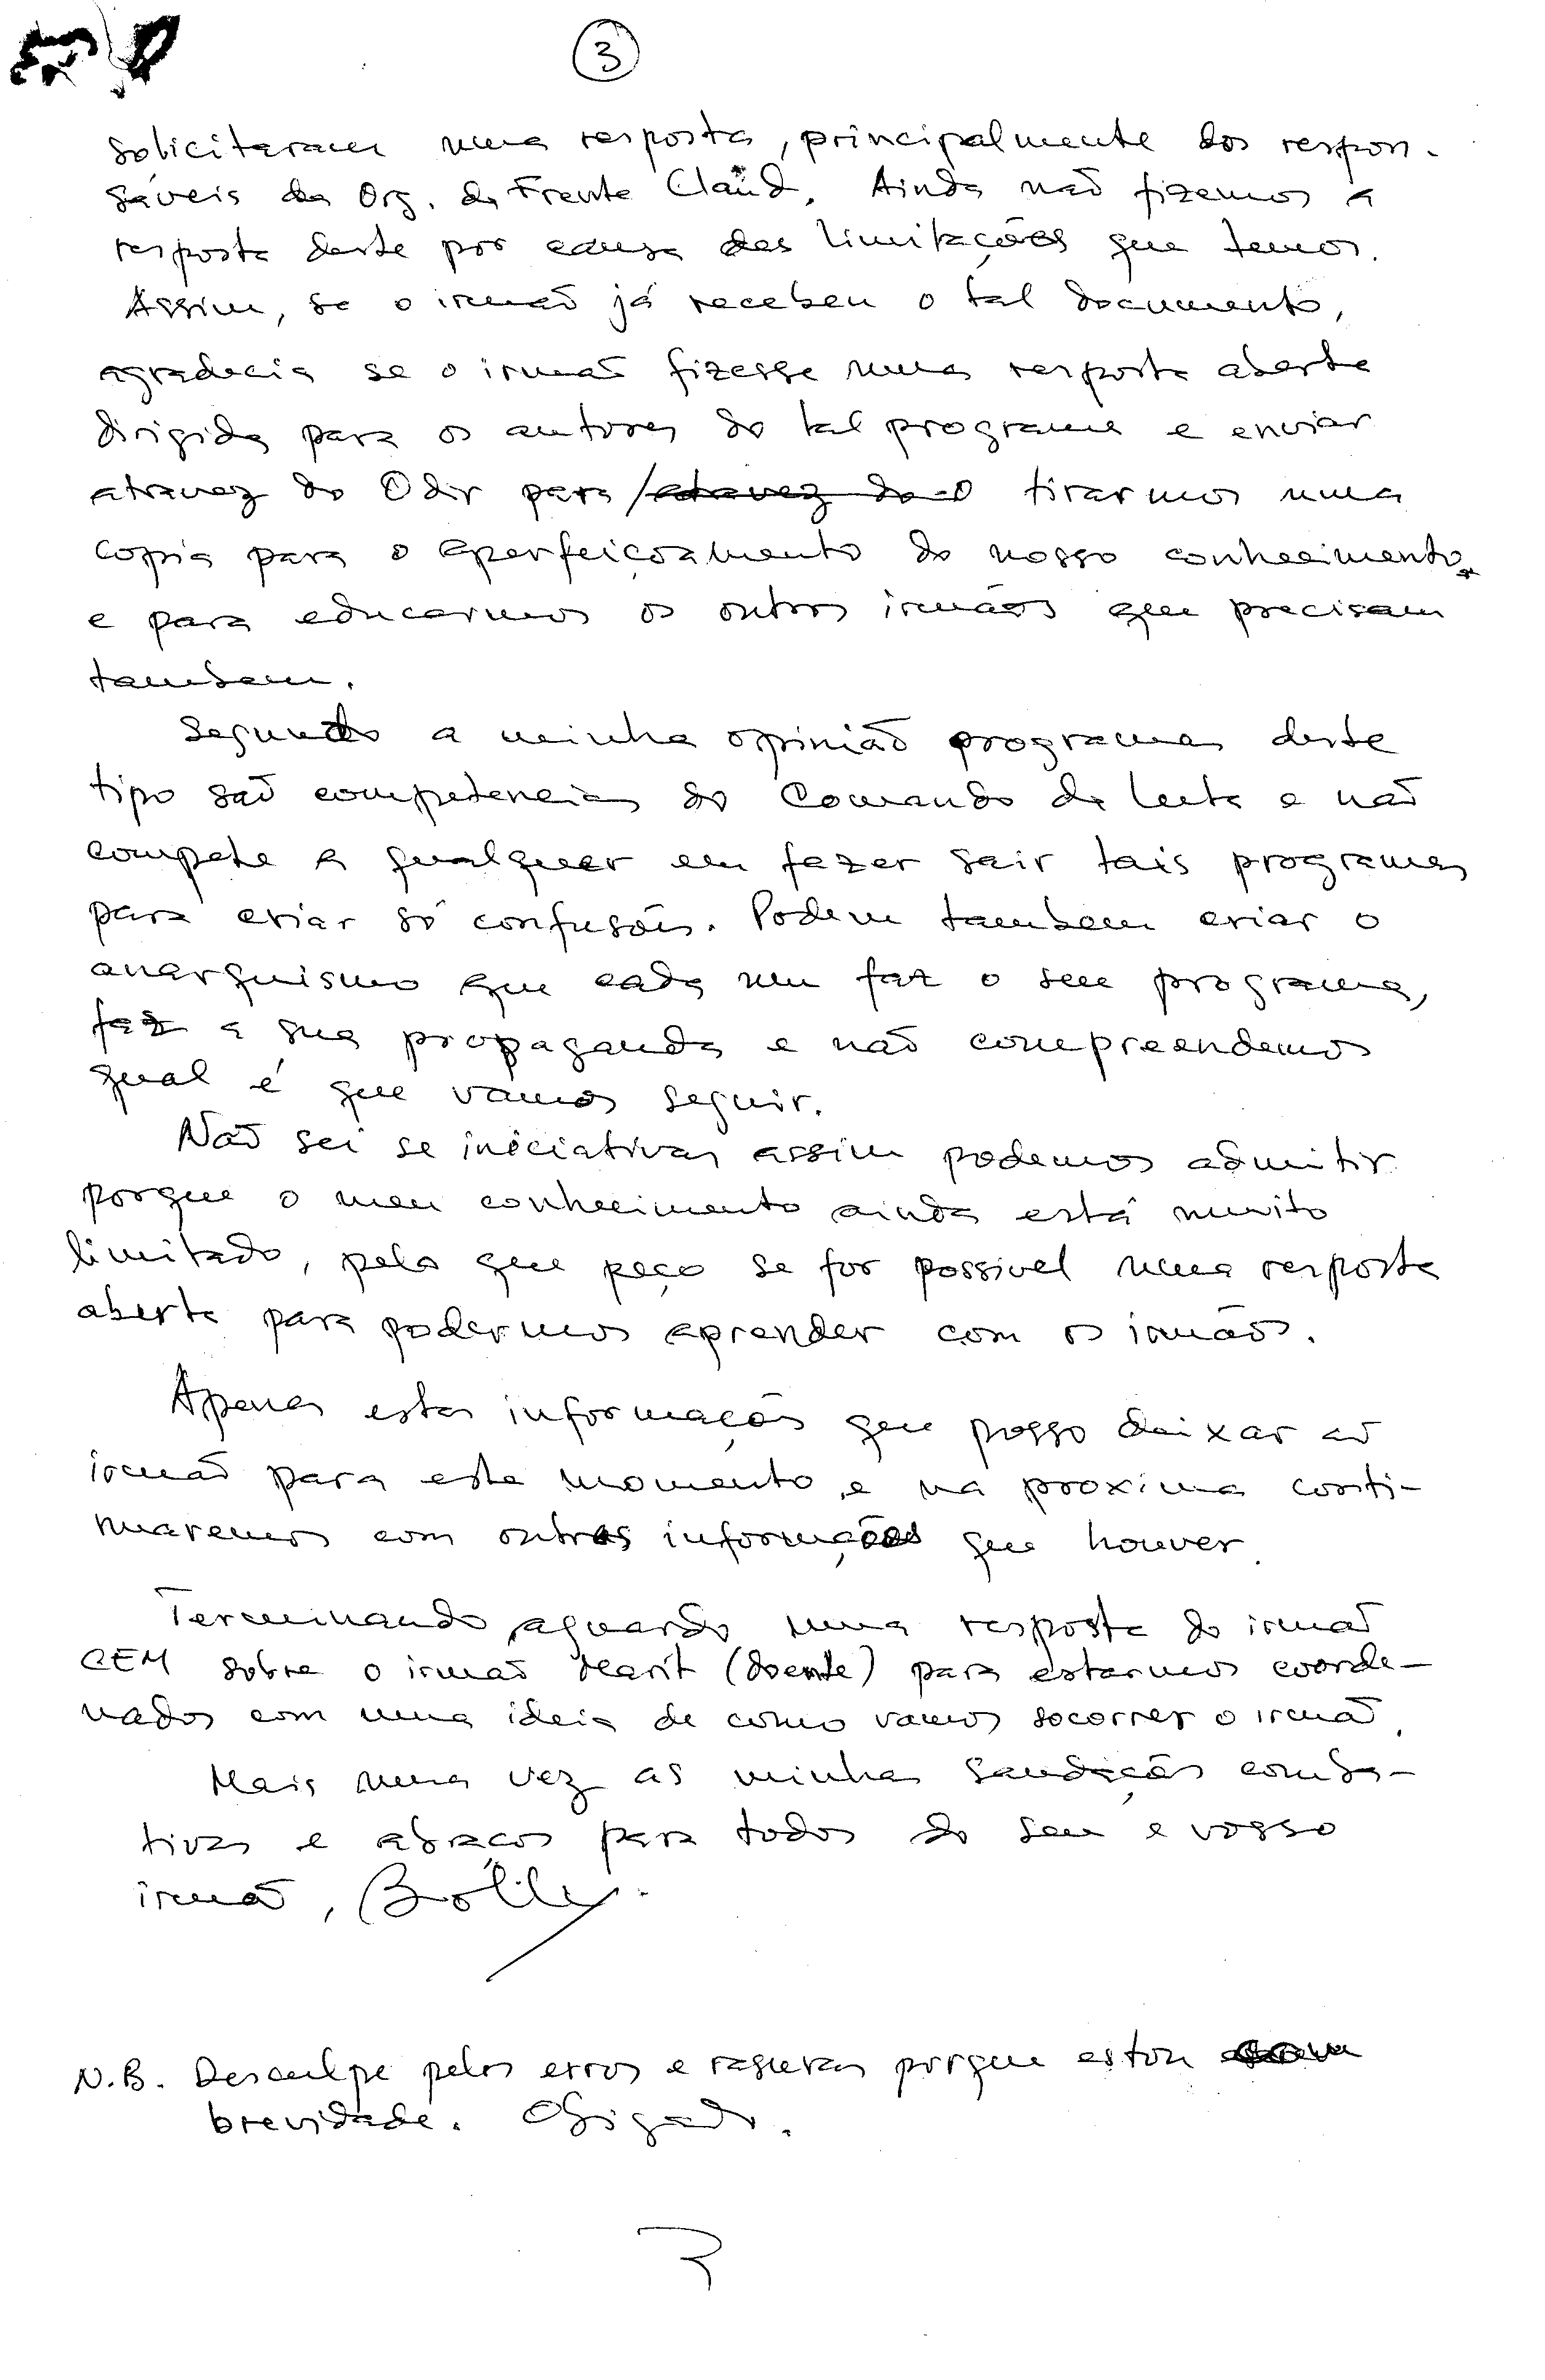 3
solicitaram uma resposta, principalmente dos respon-
sáveis da Org. da Frente Cland. Ainda não fizemos a
resposta deste por causa das limitações que temos.
Assim, se o irmão já recebeu o tal documento,
agradecia se o irmão fizesse uma resposta aberta
dirigida para os autores do tal programa e enviar
atravez do Odir para atravez do O tirarmos uma
copia para o aperfeiçoamento do nosso conhecimento
e para educarmos os outros irmãos que precisam
tambem.
Segundo a minha opinião programas deste
tipo são competencias do Comando da luta e não
compete a qualquer um fazer sair tais programas
para criar só confusões. Podem tambem criar o
anarquismo que cada um faz o seu programa,
faz a sua propaganda e não compreendemos
qual é que vamos seguir.
Não sei se iniciativas assim podemos admitir
porque o meu conhecimento ainda está muito
limitado, pelo que peço se for possivel uma resposta
aberta para podermos aprender com os irmãos.
Apenas estas informações que posso deixar ao
irmão para este momento, e na proxima conti-
nuaremos com outras informações que houver.
Terminando, aguardo uma resposta do irmão
CEM sobre o irmão Marit (doente) para estarmos coorde-
nados com uma ideia de como vamos socorrer o irmão.
Mais uma vez as minhas saudações comba-
tivas e abraços para todos do seu e vosso
irmão, Bolly.
N.B. Desculpe pelos erros e rasuras porque estou
brevidade. Obigado.